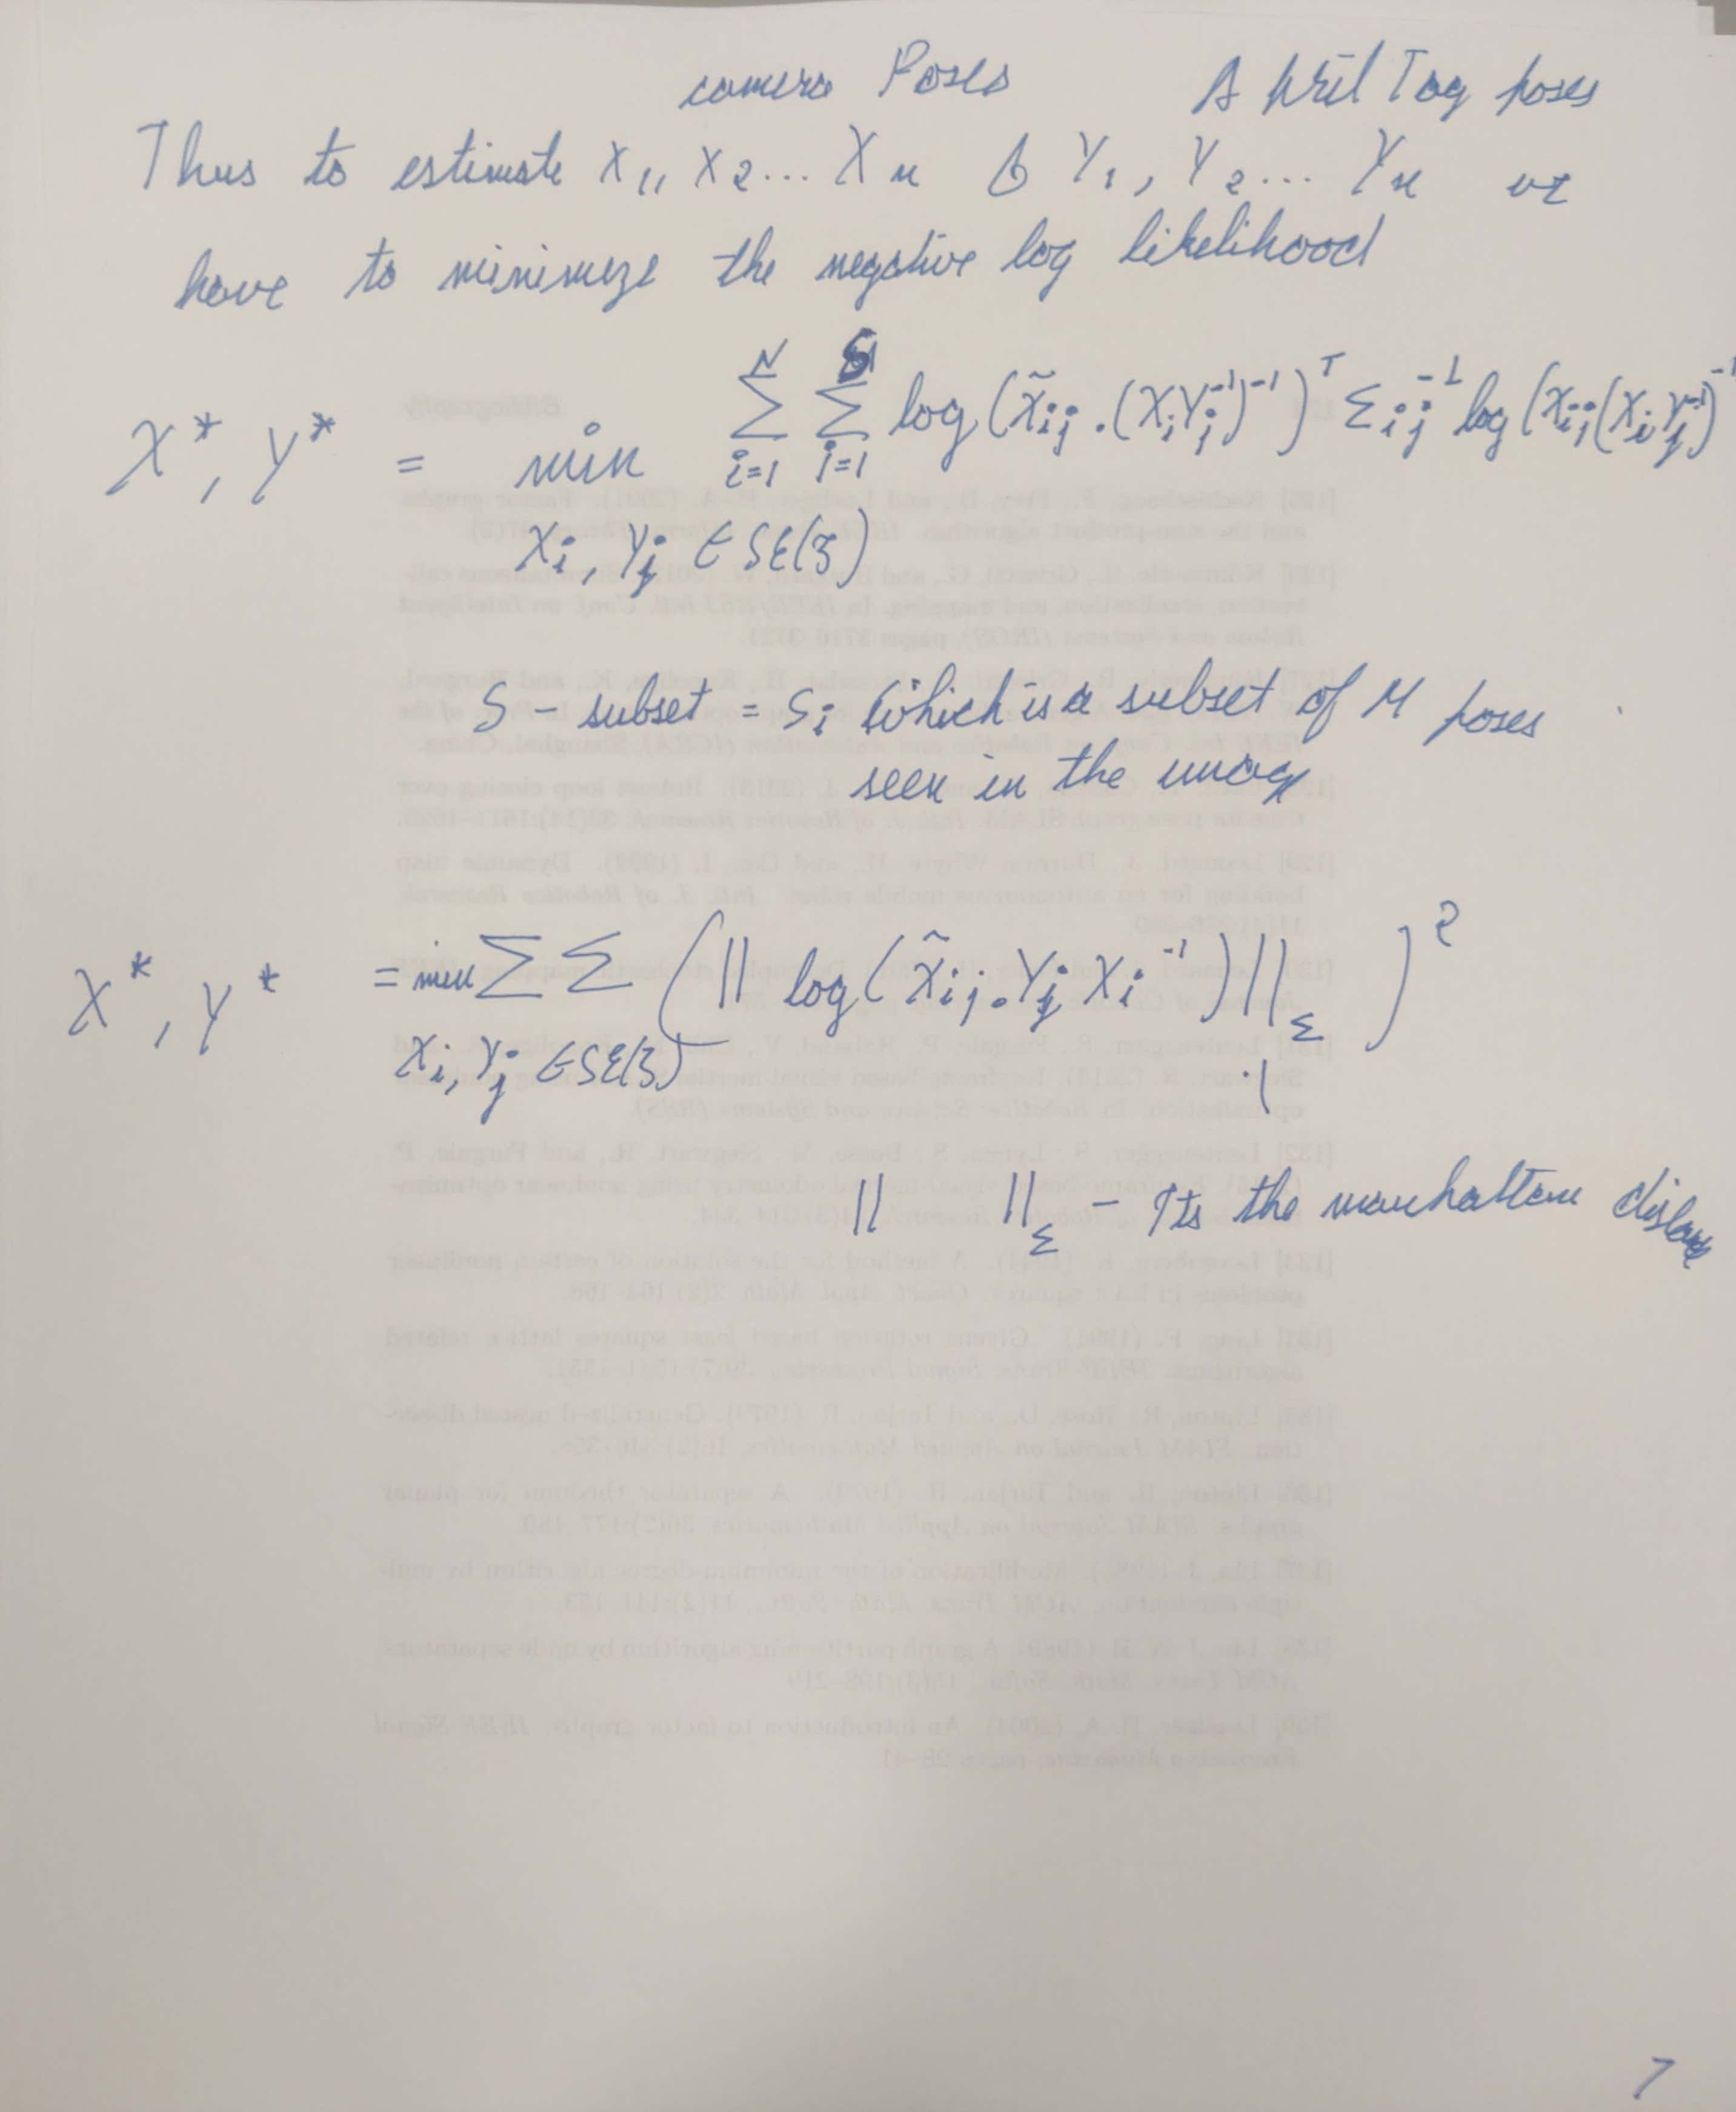 camera Poses April Tag poses
Thus to estimate X₁, X₂... Xₙ & Y₁, Y₂... Yₙ we
have to minimize the negative log likelihood
X*, Y* = min Σ_{i=1}^{N} Σ_{i=1}^{S} log(X̃ᵢⱼ.(XᵢYⱼ⁻¹)⁻¹)ᵀ Σᵢⱼ⁻¹ log(Xᵢⱼ(XᵢYⱼ⁻¹)⁻¹
Xᵢ, Yⱼ ∈ SE(3)
S - subset = Sᵢ which is a subset of M poses
seen in the
X*, Y* = min Σ Σ (|| log(X̃ᵢⱼ.Yⱼ Xᵢ⁻¹) ||_Σ)²
Xᵢ, Yⱼ ∈ SE(3)
|| ||_Σ - Its the manhattan
7